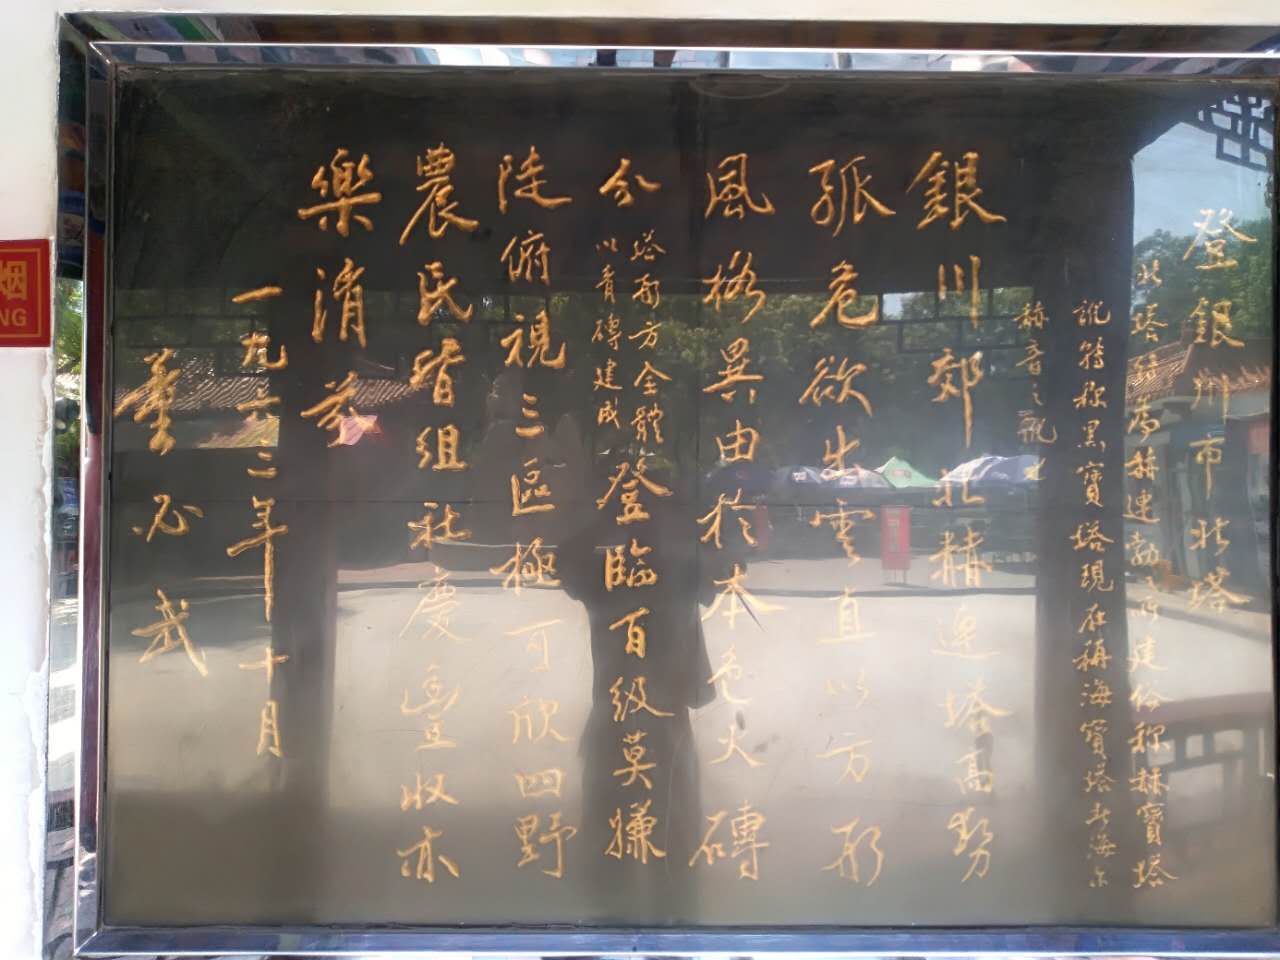 登銀川市北塔
此塔為赫連勃勃所建俗称赫寶塔
訛轉称黑寶塔現在稱海寶塔者海亦
赫音之訛也
銀川郊北赫連塔高勢
孤危欲出雲直以方形
風格異由於本色火磚
分
塔形方全體
以青磚建成
登臨百级莫嫌
陡俯視三區極可欣四野
農民皆組社慶豐收亦
樂清芬
一九六三年十月
董必武
烟
NG